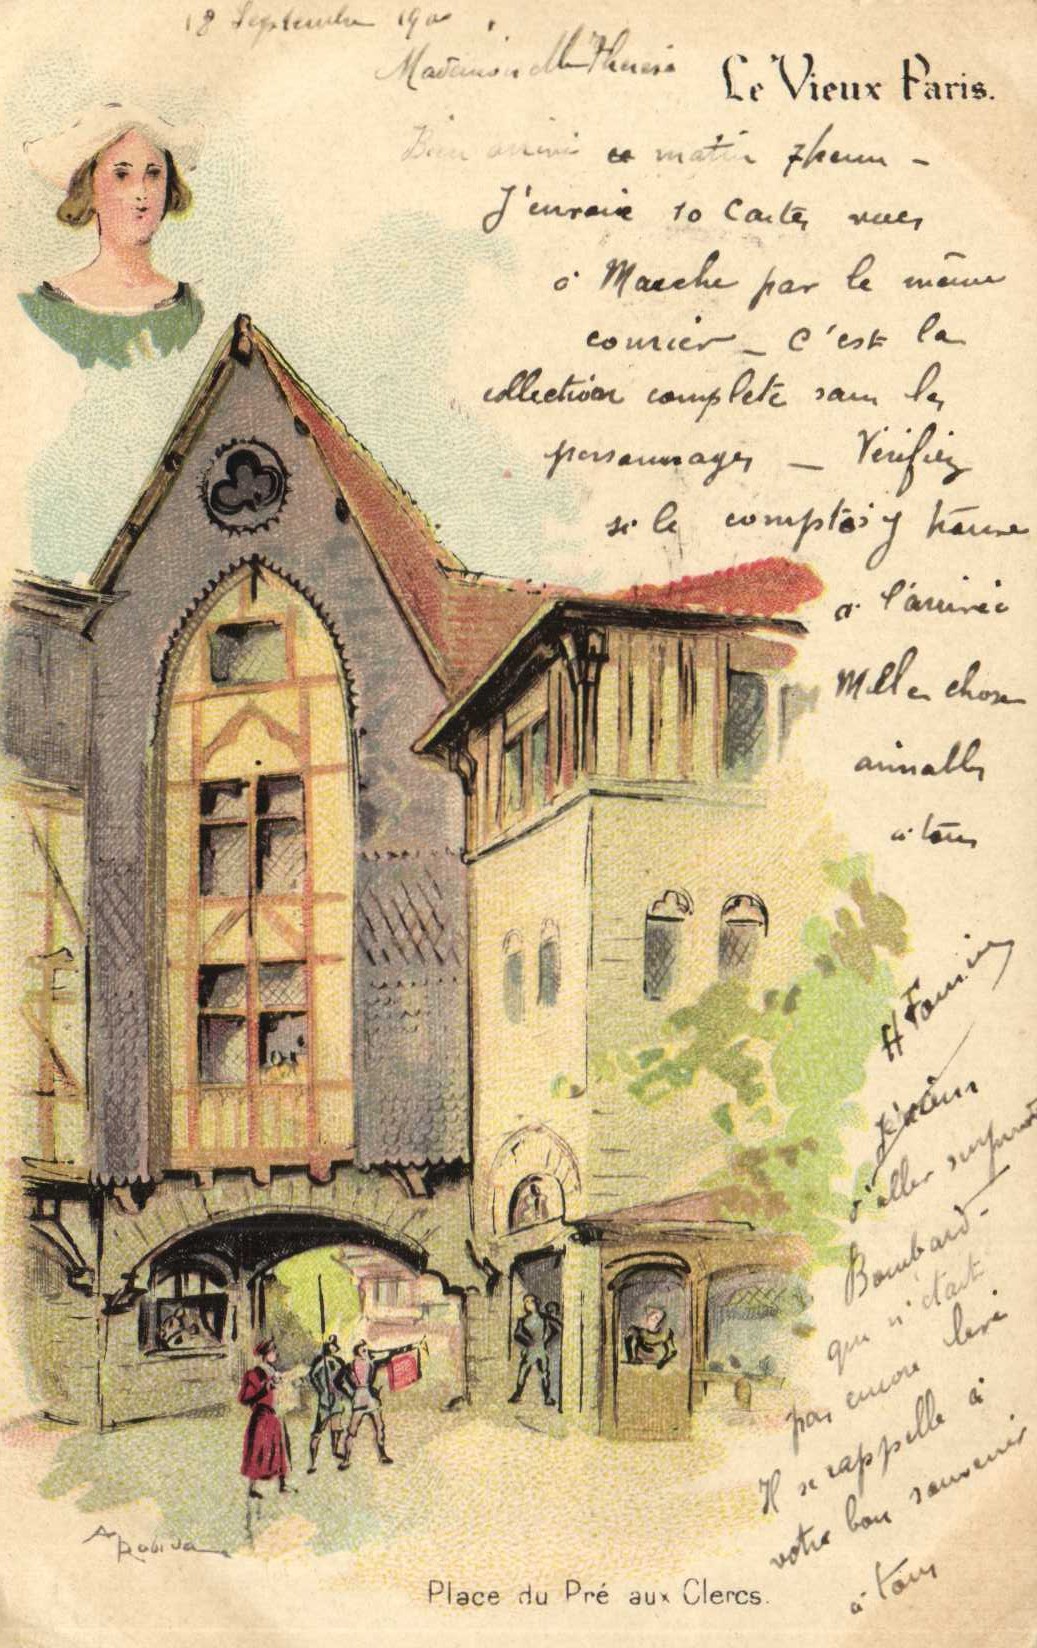 18 Septembre 190
Mademoiselle Therese
Le Vieux Paris.
Bien arrivé ce matin 7 heures -
J'envoie 10 Cartes vues
à Marche par le même
courrier - C'est la
collection complète sans les
personnages - Vérifiez
si le compte y
à l'arrivée
Mille choses
aimables
à tous
Je viens
d'aller
Bombard -
qui n'était
pas encore levé
Il se rappelle à
votre bon souvenir
à tous
A Robida
Place du Pré aux Clercs.